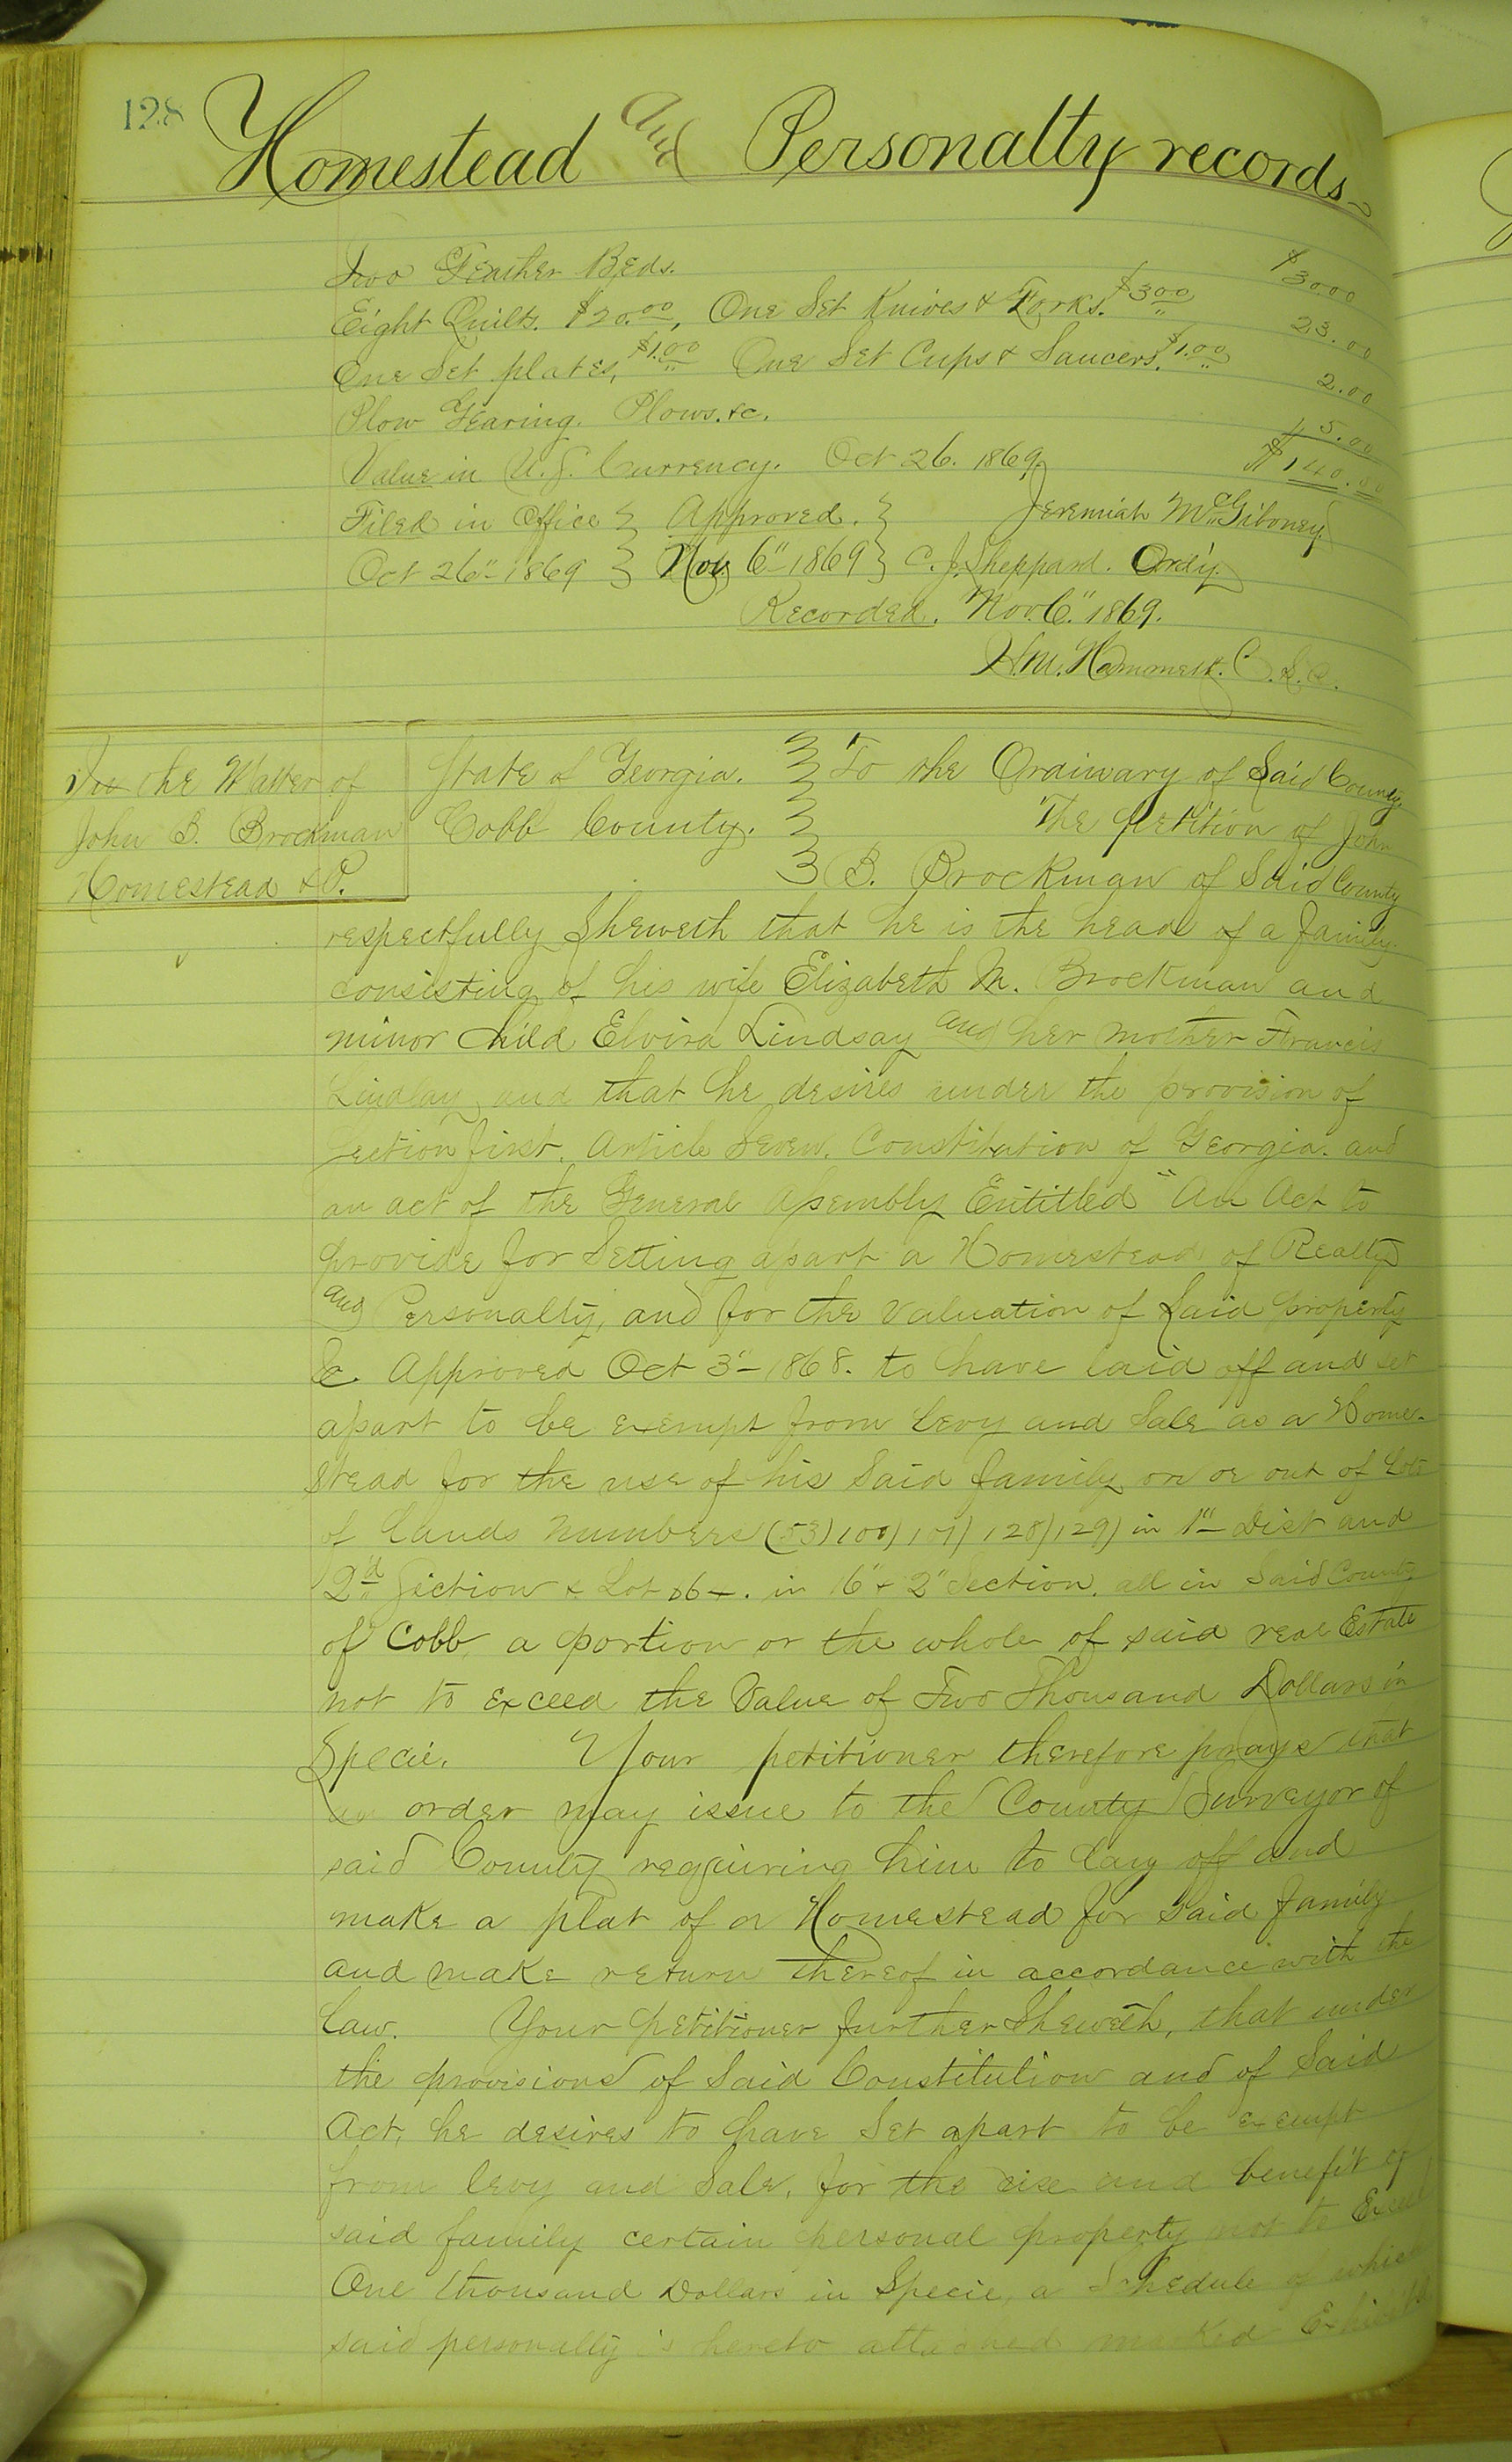 128
Homestead and Personalty records
Two Feather Beds. $30.00
Eight Quilts. $20.00, One Set Knives & Forks. $3.00 23.00
One Set plates, $1.00 One Set Cups & Saucers. $1.00 2.00
Plow Gearing. Plows. &c. 5.00
Value in U.S. Currency. Oct 26. 1869 $140.00
Filed in Office } Approved. } Jeremiah McGiboney
Oct 26" 1869 } Nov 6" 1869 } C. J. Sheppard. Ord'y.
Recorded. Nov. 6" 1869.
H.M. C.S.C.
In the Matter of
John B. Brockman
Homestead & P.
State of Georgia. } To the Ordinary of Said County.
Cobb County. } The petition of John
} B. Brockman of Said County
respectfully Sheweth that he is the head of a family
consisting of his wife Elizabeth M. Brockman and
minor child Elvira Lindsay and her mother Francis
Lindsay and that he desires under the provision of
Section first. Article Seven. Constitution of Georgia. and
an act of the General Assembly Entitled "An Act to
provide for Setting apart a Homestead of Realty
and Personalty, and for the valuation of Said property
&c. Approved Oct 3" 1868. to have laid off and set
apart to be exempt from levy and Sale as a Home-
stead for the use of his Said family on or out of Lots
of Lands Numbers (53) 100) 101) 128) 129) in 1st Dist and
2d Section & Lot in 16" & 2" Section. all in Said County
of Cobb, a portion or the whole of said real Estate
not to exceed the Value of Two Thousand Dollars in
Specie. Your petitioner therefore prays that
an order may issue to the County Surveyor of
said County requiring him to lay off and
make a plat of a Homestead for Said family
and make return thereof in accordance with the
law. Your petitioner further Sheweth, that under
the provisions of Said Constitution and of Said
Act, he desires to have Set apart to be exempt
from levy and Sale, for the use and benefit of
said family certain personal property not to Exceed
One thousand Dollars in Specie, a Schedule of which
said personalty is hereto attached marked Exhibit